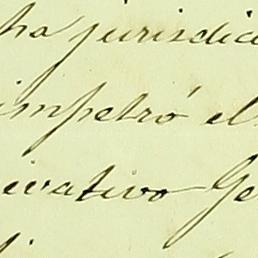 ha jurisdic
impetró el
ivativo Ge